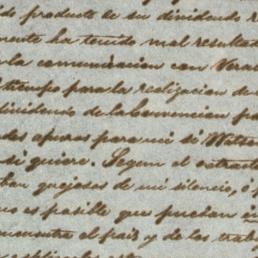 producto de su dividendo
ha tenido mal resultad
la comunicacion con Vera
tiempo para la realizacion de
dividendo de la Convencion
apuros para mi si Wilson
si quiere. Segun el estracto
quejosos de mi silencio, o
es posible que puedan
el pais y de los trab